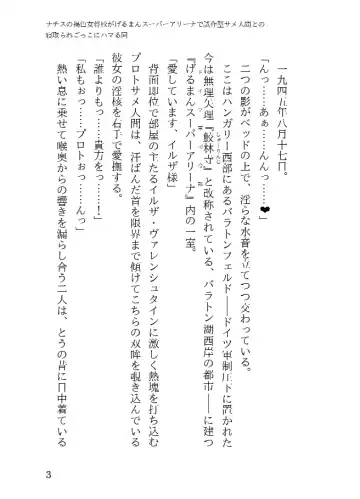 ナチスの褐色女将校がげるまんスーパーアリーナで試作型サメ人間との
寝取られごっこにハマる回
一九四五年八月十七日。
「んっ……あぁ……んんっ……❤」
二つの影がベッドの上で、淫らな水音を立てつつ交わっている。
ここはハンガリー西部にあるバラトンフェルド――ドイツ軍制圧下に置かれた
今は無理矢理『鮫林寺』と改称されている、バラトン湖西岸の都市――に建つ
『げるまんスーパーアリーナ』内の一室。
「愛しています、イルザ様」
背面側位で部屋の主たるイルザ・ヴァレンシュタインに激しく熱塊を打ち込む
プロトサメ人間は、汗ばんだ首を限界まで傾けてこちらの双眸を覗き込んでいる
彼女の淫核を右手で愛撫する。
「誰よりもっ……貴方をっ……！」
「私もぉっ……プロトぉっ……んっ」
熱い息に乗せて喉奥からの響きを漏らし合う二人は、とうの昔に日中着ている
3